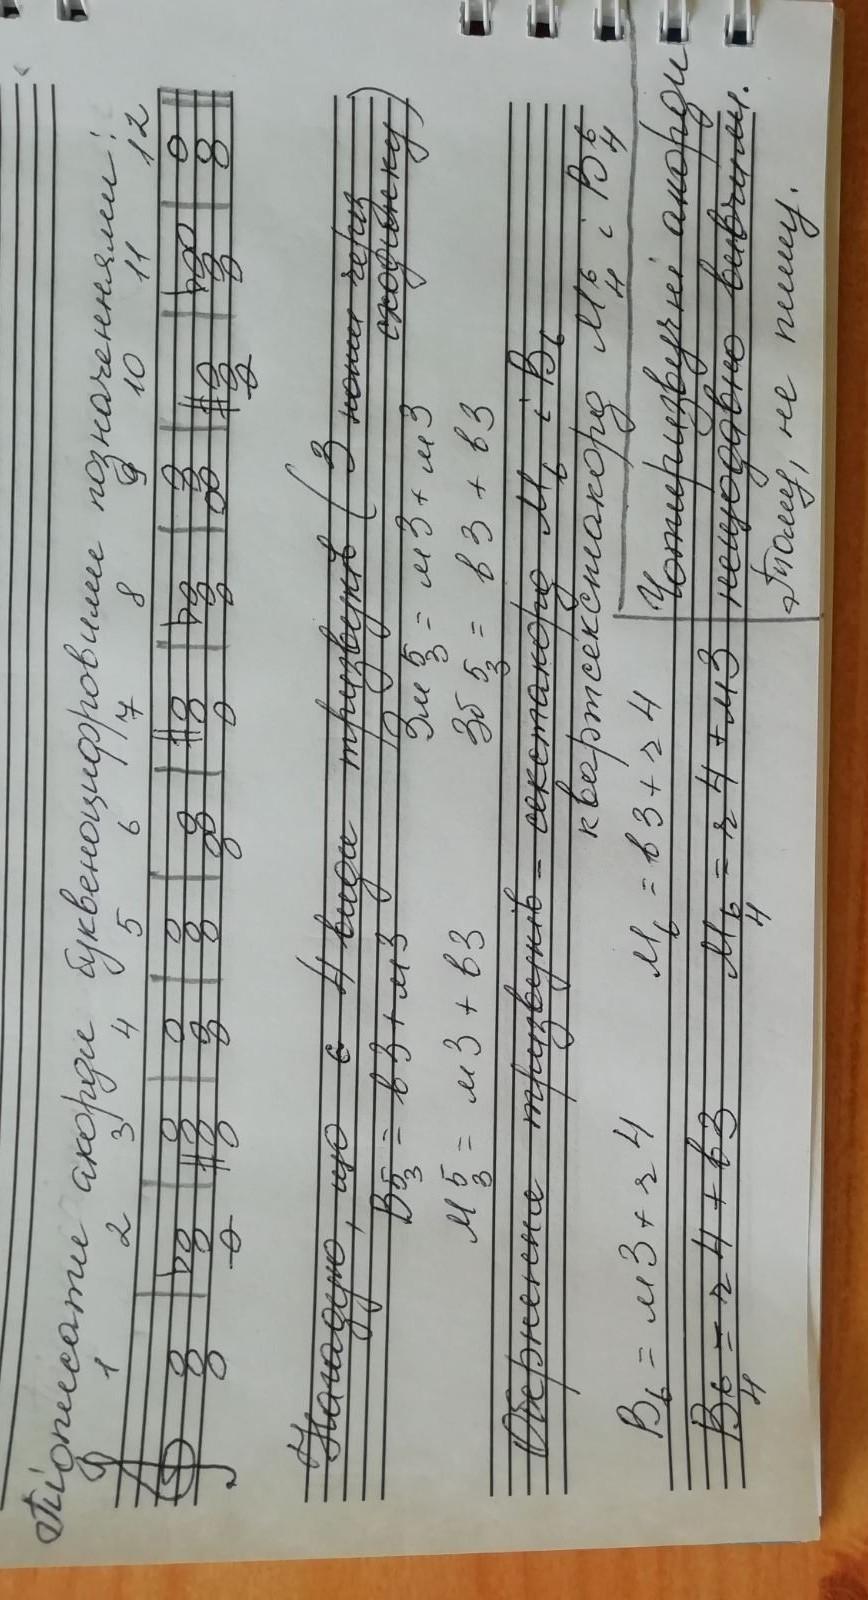 Підписати акорди буквеноцифровими позначеннями:
1 2 3 4 5 6 7 8 9 10 11 12
Нагадую, що є 4 види тризвуків (3 ноти через
сходинку)
В5/3 = в3+м3 Зм5/3 = м3+м3
М5/3 = м3+в3 Зб5/3 = в3+в3
Обернення тризвуків - секстакорд М6 і В6
квартсекстакорд М6/4 і В6/4
В6 = м3+ч4 М6 = в3+ч4
В6/4 = ч4+в3 М6/4 = ч4+м3
Чотиризвучні акорди
нещодавно вивчили.
Тому, не пишу.